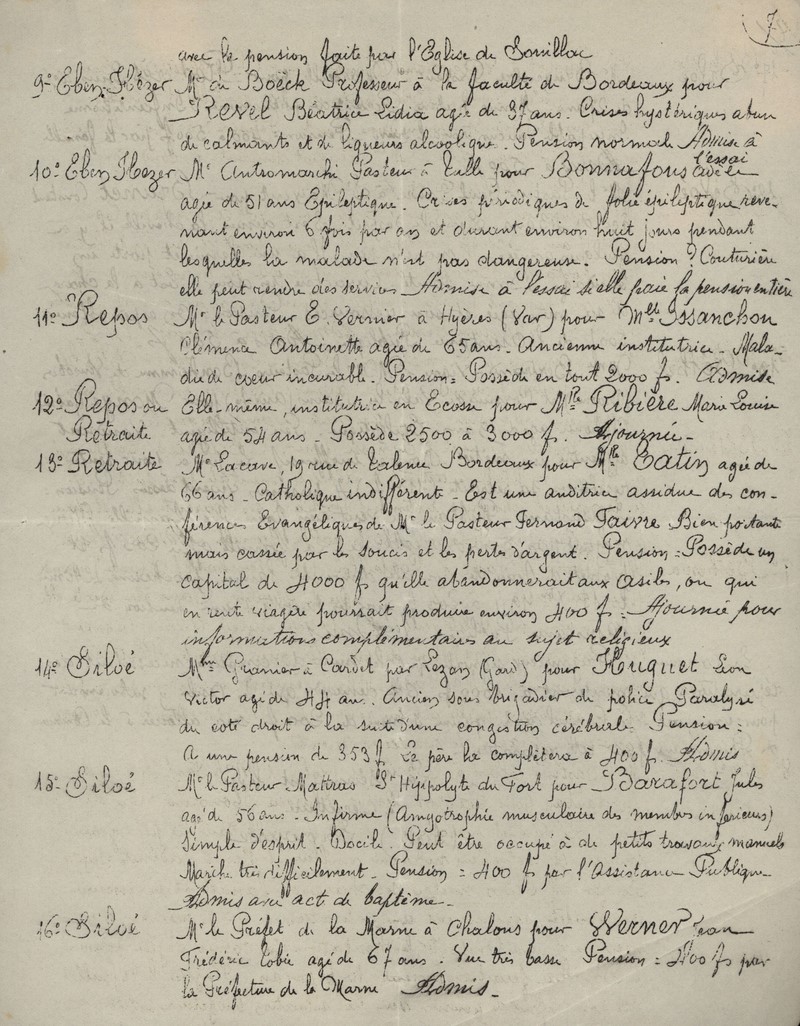 7
avec la pension faite par l'Eglise de Souillac
9º Eben-Hézer Mr de Boëck Professeur à la faculté de Bordeaux pour
REVEL Béatrice Lidia agée de 37 ans. Crises hystériques abus
de calmants et de liqueurs alcoolique. Pension normale Admise à
l'essai
10º Eben Hezer Mr Antromarchi Pasteur à Tulle pour Bonnafous Adèle
agée de 51 ans Epileptique. Crises périodiques de folie épileptique reve-
nant environ 6 fois par an et durant environ huit jours pendant
lesquelles la malade n'est pas dangereuse. Pension ? Couturière
elle peut rendre des services Admise à l'essai si elle paie la pension entière
11º Repos Mr le Pasteur E. Vernier à Hyères (Var) pour Melle Issanchou
Clémence Antoinette agée de 65 ans. Ancienne institutrice - Mala-
die de cœur incurable. Pension = Possède en tout 2000 f. Admise
12º Repos ou Elle-même, institutrice en Ecosse pour Mlle Ribière Marie Louise
Retraite agée de 54 ans - Possède 2500 à 3000 f. Ajournée -
13º Retraite Mr Lacave, 19 rue de Talence Bordeaux pour Mlle Tatin agée de
66 ans - Catholique indifférente - Est une auditrice assidue des con-
férences Evangéliques de Mr le Pasteur Fernand Faivre Bien portante
mais cassée par les soucis et les pertes d'argent. Pension = Possède un
capital de 4000 f qu'elle abandonnerait aux Asiles, ou qui
en rente viagère pourrait produire environ 400 f - Ajournée pour
informations complémentaires au sujet religieux
14º Siloé Mme Granier à Cardet par Lézan (Gard) pour Huguet Léon
Victor agé de 44 ans. Ancien sous brigadier de police Paralysé
du coté droit à la suite d'une congestion cérébrale Pension :
A une pension de 353 f Le père la complètera à 400 f. Admis
15º Siloé Mr le Pasteur Mattras St Hippolyte du Fort pour Barafort Jules
agé de 56 ans - Infirme (Amyotrophie musculaire des membres inférieurs)
Simple d'esprit. Docile. Peut être occupé à de petits travaux manuels
Marche très difficilement - Pension = 400 f par l'Assistance Publique -
Admis avec act de baptême -
16º Siloé Mr le Préfet de la Marne à Chalons pour Werner Jean
Frédéric Tobie agé de 67 ans. Vue très basse Pension = 400 f par
la Préfecture de la Marne Admis -